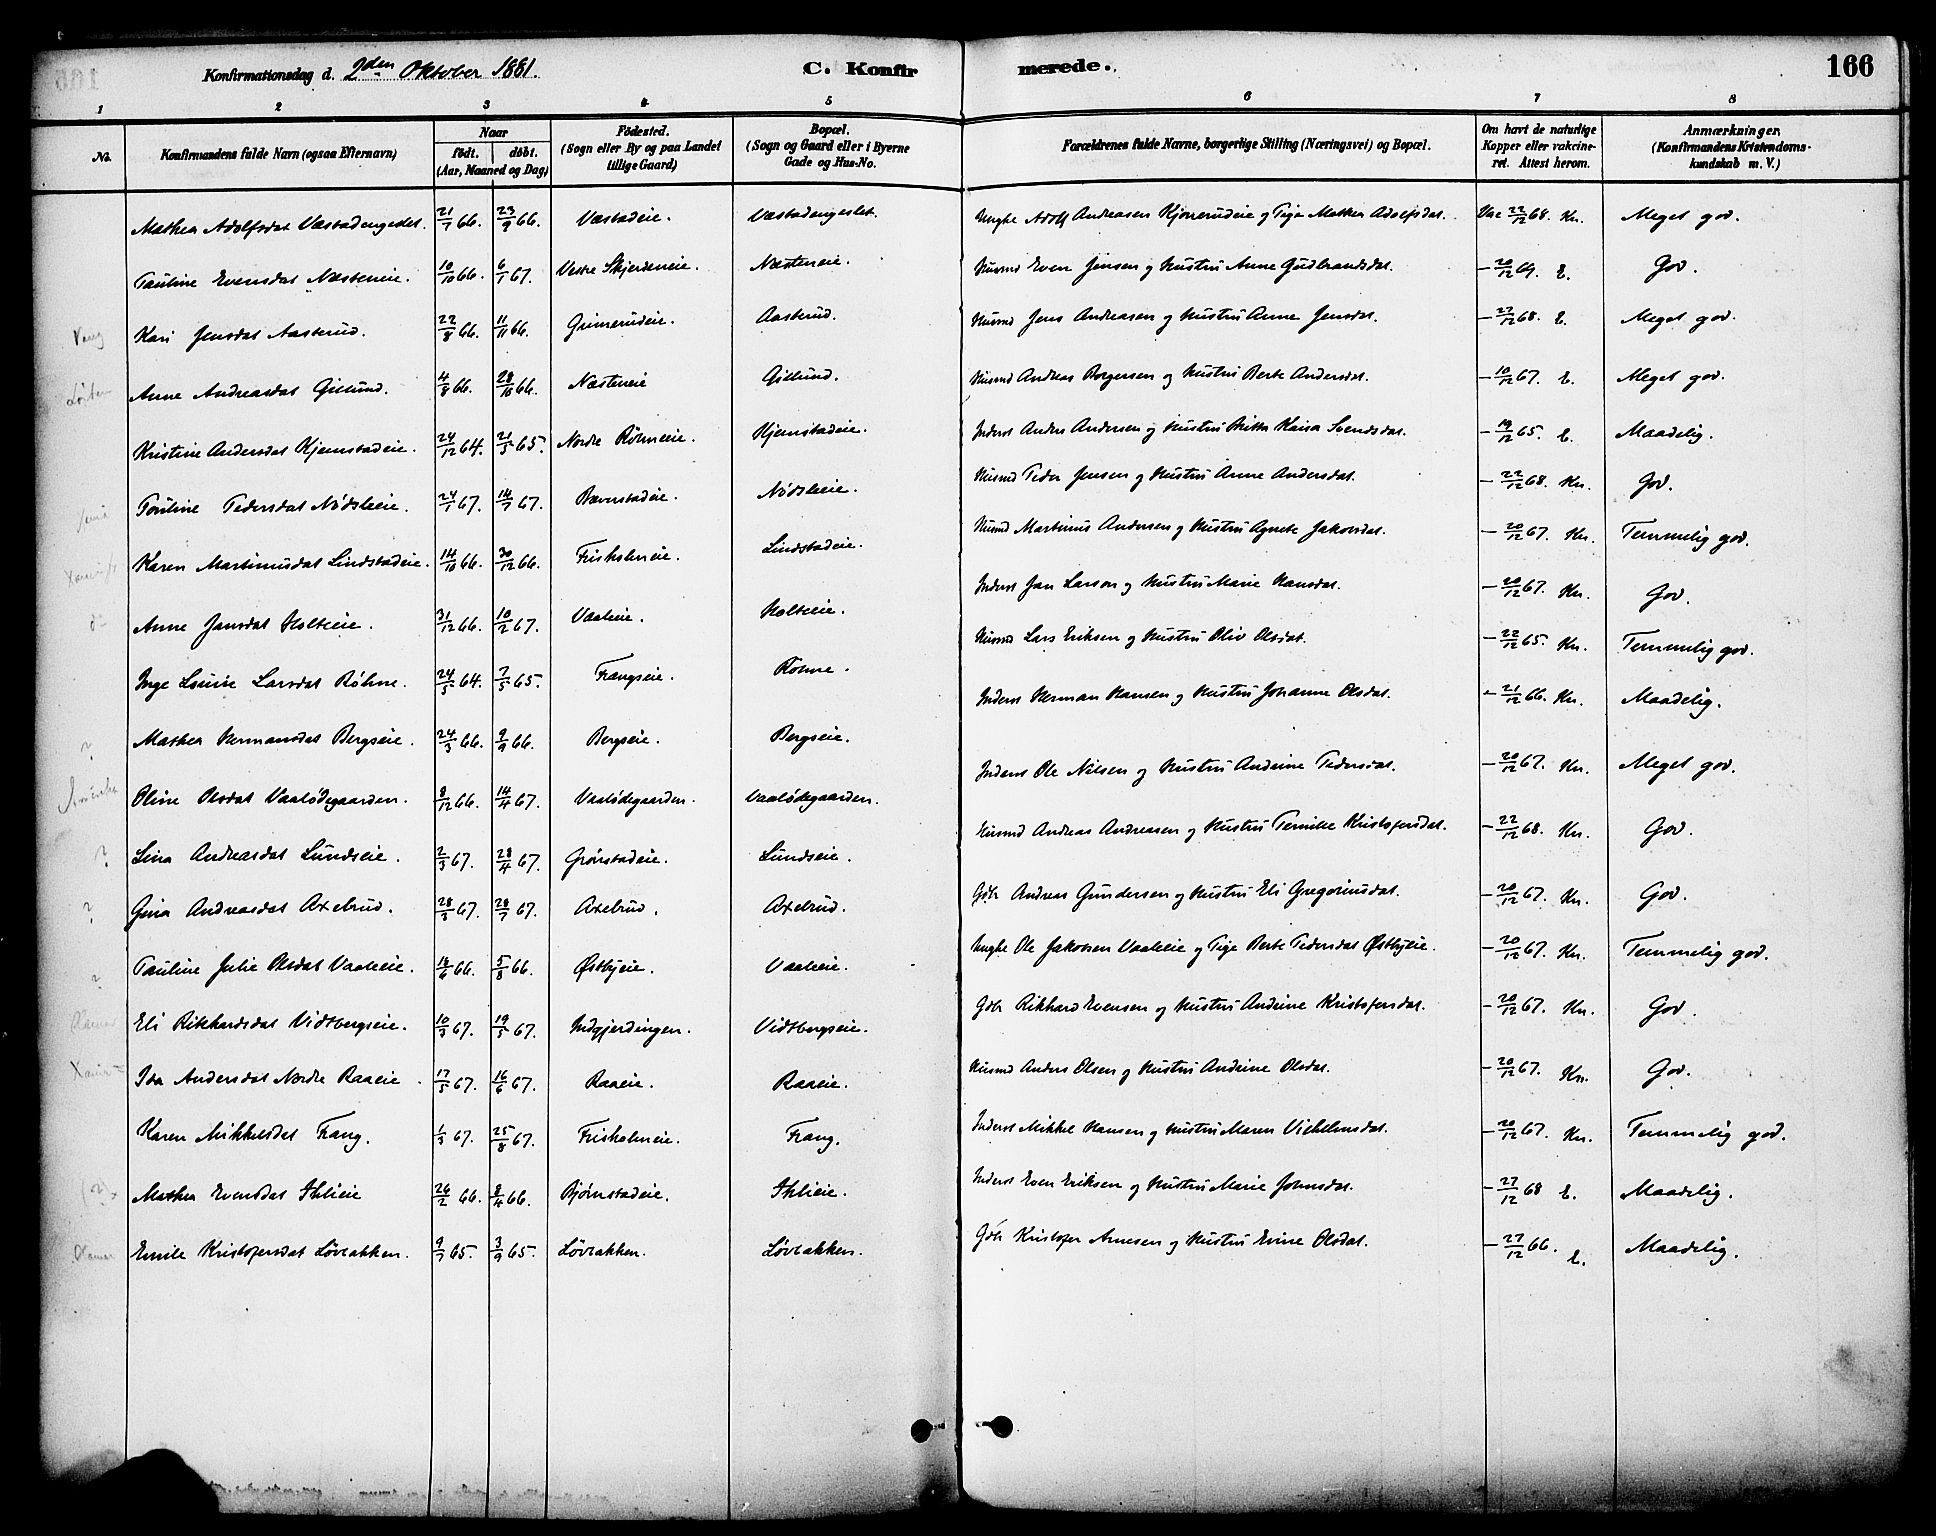 Konfirmationsdag d. 2den Oktober 1881. C. Konfirmerede. 166
1 2 3 4 5 6 7 8
No. Konfirmandens fulde Navn (ogsaa Efternavn) Naar födt. döbt. (Aar, Maaned og Dag) Födested. (Sogn eller By og paa Landet tillige Gaard) Bopæl. (Sogn og Gaard eller i Byerne Gade og Hus-No. Forældrenes fulde Navne, borgerlige Stilling (Næringsvei) og Bopæl. Om havt de naturlige Kopper eller vakcineret. Attest herom. Anmærkninger. (Konfirmandens Kristendomskundskab m. V.)
Mathea Adolfsdat Væstadengeslet. 21/7 66. 23/9 66. Væstadeie. Væstadengeslet. Ungke Adolf Andreasen Kjonerudeie og Pige Mathea Adolfsdat. Vac 22/12 68. Kn. Meget god.
Pauline Evensdat Næsteneie. 10/10 66. 6/1 67. Vestre Skjerdeneie. Næsteneie. Husmd Even Jensen og Hustru Anne Gudbrandsdat. – 20/12 69. E. God.
Vang Kari Jensdat Aasterud. 22/8 66. 11/11 66. Grimerudeie. Aasterud. Husmd Jens Andreasen og Hustru Anne Jensdat. – 27/12 68. E. Meget god.
Löiten Anne Andreasdat Gillund. 4/8 66. 28/10 66. Næsteneie Gillund. Husmd Andreas Borgersen og Hustru Berte Andersdat. – 10/12 67. E. Meget god.
Kristine Andersdat Kjemstadeie. 24/12 64. 21/5 65. Nordre Röhneeie. Kjemstadeie. Inderst Anders Andersen og Hustru Britta Kaisa Svendsdat. – 19/12 65. E. Maadelig.
Pauline Pedersdat Nödsleeie. 24/1 67. 14/7 67. Bæverstadeie. Nödsleeie. Husmd Peder Jensen og Hustru Anne Andersdat. – 22/12 68. Kn. God.
Karen Martinusdat Lindstadeie. 14/10 66. 30/12 66. Friskolmeie. Lindstadeie. Husmd Martinus Andersen og Hustru Agnete Jakobsdat. – 20/12 67. Kn. Temmelig god.
Anne Jansdat Holteeie. 31/12 66. 10/2 67. Vaaleeie. Holteeie. Inderst Jan Larson og Hustru Marie Hansdat. – 20/12 67. Kn. God.
Inge Louise Larsdat Röhne. 24/5 64. 7/5 65. Frangseie. Röhne. Husmd Lars Eriksen og Hustru Oliv Olsdat. – 22/12 65. Kn. Temmelig god.
? Mathea Hermansdat Bergseie. 24/3 66. 9/9 66. Bergseie. Bergseie. Inderst Herman Hansen og Hustru Johanne Olsdat. – 21/12 66. Kn. Maadelig.
Oline Olsdat Vaalödegaarden. 8/12 66. 14/4 67. Vaalödegaarden. Vaalödegaarden. Inderst Ole Nilsen og Hustru Andrine Pedersdat. – 20/12 67. Kn. Meget god.
? Lina Andreasdat Lundseie. 2/3 67. 28/4 67. Grönstadeie. Lundseie. Husmd Andreas Andreasen og Hustru Pernille Kristofersdat. – 22/12 68. Kn. God.
? Gina Andreasdat Axelrud. 28/3 67. 28/7 67. Axelrud. Axelrud. Gdbr Andreas Gundersen og Hustru Eli Gregoriusdat. – 20/12 67. Kn. God.
? Pauline Julie Olsdat Vaaleeie. 18/6 66. 5/8 66. Østbyeie. Vaaleeie. Ungke Ole Jakobsen Vaaleeie og Pige Berte Pedersdat Østbyeie. – 20/12 67. Kn. Temmelig god.
Eli Rikhardsdat Vidtbergseie. 10/3 67. 19/5 67. Indgjerdingen. Vidtbergseie. Gdbr Rikhard Evensen og Hustru Andrine Kristofersdat. – 20/12 67. Kn. God.
Ida Andersdat Nordre Raaeie. 17/5 67. 16/6 67. Raaeie. Raaeie. Husmd Anders Olsen og Hustru Andrine Olsdat. – 20/12 67. Kn. God.
Karen Mikkelsdat Frang. 1/3 67. 25/8 67. Friskolmeie. Frang. Inderst Mikkel Hansen og Hustru Maren Vilhelmsdat. – 20/12 67. Kn. Temmelig god.
Mathea Evensdat Ihleeie 26/2 66. 8/4 66. Bjørnstadeie. Ihleeie. Inderst Even Eriksen og Hustru Marie Johnsdat. – 27/12 68 E. Maadelig.
Emile Kristofersdat Lövbakken. 9/7 65. 3/9 65. Lövbakken. Lövbakken. Gdbr Kristofer Arnesen og Hustru Eline Olsdat. – 27/12 66. E. Maadelig.